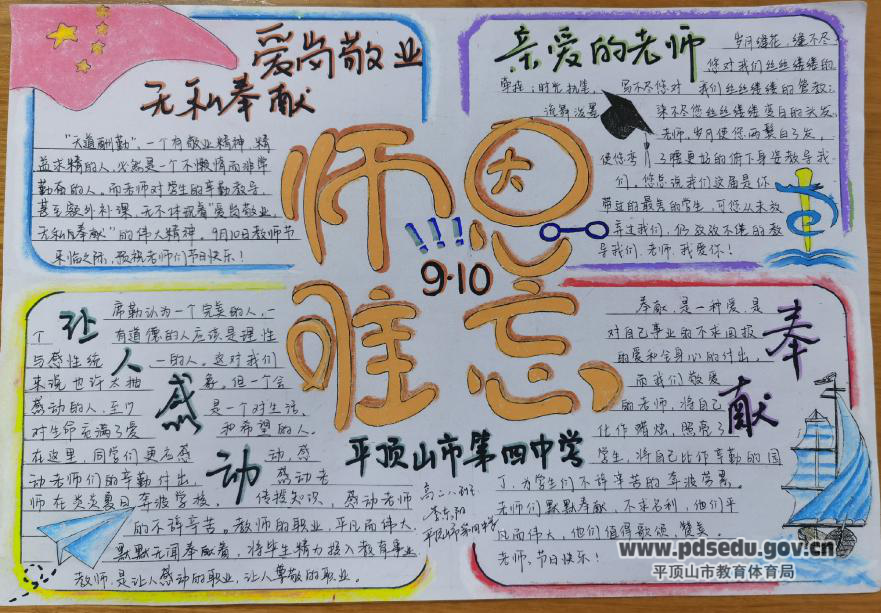 爱岗敬业
无私奉献
"天道酬勤",一个有敬业精神,精
益求精的人,必然是一个不懒惰而非常
勤奋的人。而老师对学生的辛勤教导,
甚至额外补课,无不体现着"爱岗敬业,
无私奉献"的伟大精神。9月10日教师节
来临之际,敬祝老师们节日快乐!
亲爱的老师
岁月缝花,缝不尽
您对我们丝丝缕缕的
牵挂;时光执笔,写不尽您对我们丝丝缕缕的管教;
流年泼墨
染不尽您丝丝缕缕变白的头发。
老师,岁月使您两鬓白了发,
使您弯了腰更好的俯下身姿教导我
们。您总说我们这届是你
带过的最差的学生,可您从未放
弃过我们,仍孜孜不倦的教
导我们,老师,我爱你!
师恩难忘
大
!!!
9·10
平顶山市第四中学
让人感动
席勒认为一个完美的人,一
个有道德的人应该是理性
与感性统一的人。这对我们
来说也许太抽象。但一个会
感动的人,至少是一个对生活、
对生命充满了爱和希望的人。
在这里,同学们更名感动,感
动老师们的辛勤付出,感动老
师在炎炎夏日奔波学校、传授知识,感动老师
的不辞辛苦。教师的职业,平凡而伟大,
默默无闻奉献着,将毕生精力投入教育事业
教师,是让人感动的职业,让人尊敬的职业。
高二八班
平顶山市第四中学
奉献
奉献,是一种爱,是
对自己事业的不求回报
的爱和全身心的付出,
而我们敬爱
的老师,将自己
化作蜡烛,照亮了
学生,将自己比作辛勤的园
丁,为学生们不辞辛苦的奔波劳累。
老师们默默奉献,不求名利,他们平
凡而伟大,他们值得歌颂、赞美。
老师,节日快乐!
www.pdsedu.gov.cn
平顶山市教育体育局